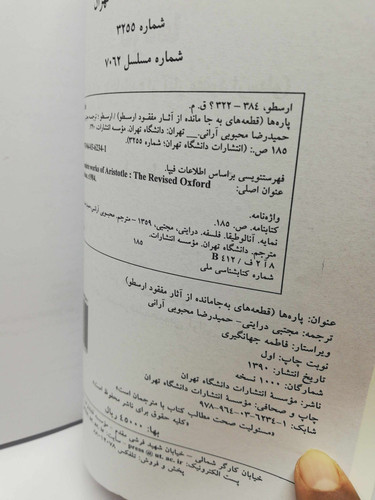 تهران
شماره ۳۲۵۵
شماره مسلسل ۷۰۶۲
ارسطو، ۳۸۴ – ۳۲۲ ؟ ق. م.
پاره‌ها (قطعه‌های به جا مانده از آثار مفقود ارسطو) / ارسطو؛ ترجمه
حمیدرضا محبوبی آرانی.__ تهران: دانشگاه تهران، مؤسسه انتشارات
۱۸۵ ص.: (انتشارات دانشگاه تهران؛ شماره ۳۲۵۵).
6234-1
فهرستنویسی براساس اطلاعات فیپا.
عنوان اصلی: works of Aristotle : The Revised Oxford
1984.
واژه‌نامه.
کتابنامه. ص. ۱۸۵.
نمایه. آنالوطیقا. فلسفه. درایتی، مجتبی، ۱۳۵۹ – مترجم. محبوبی آرانی،
مترجم. دانشگاه تهران. مؤسسه انتشارات.
۸ آ ۲ ف / B ۴۱۲
۱۸۵
شماره کتابشناسی ملی
عنوان: پاره‌ها (قطعه‌های به‌جامانده از آثار مفقود ارسطو)
ترجمه: مجتبی درایتی- حمیدرضا محبوبی آرانی
ویراستار: فاطمه جهانگیری
نوبت چاپ: اول
تاریخ انتشار: ۱۳۹۰
شمارگان: ۱۰۰۰ نسخه
ناشر: مؤسسۀ انتشارات دانشگاه تهران
چاپ و صحافی: مؤسسۀ انتشارات دانشگاه تهران
شابک: ۱-۶۲۳۴-۰۳-۹۶۴-۹۷۸
«مسئولیت صحت مطالب کتاب با مترجمان است»
«کلیه حقوق برای ناشر محفوظ است»
بها: ۴۵۰۰۰ ریال
خیابان کارگر شمالی - خیابان شهید فرشی مقدم
پست الکترونیک: press@ut.ac.ir
پخش و فروش: تلفکس